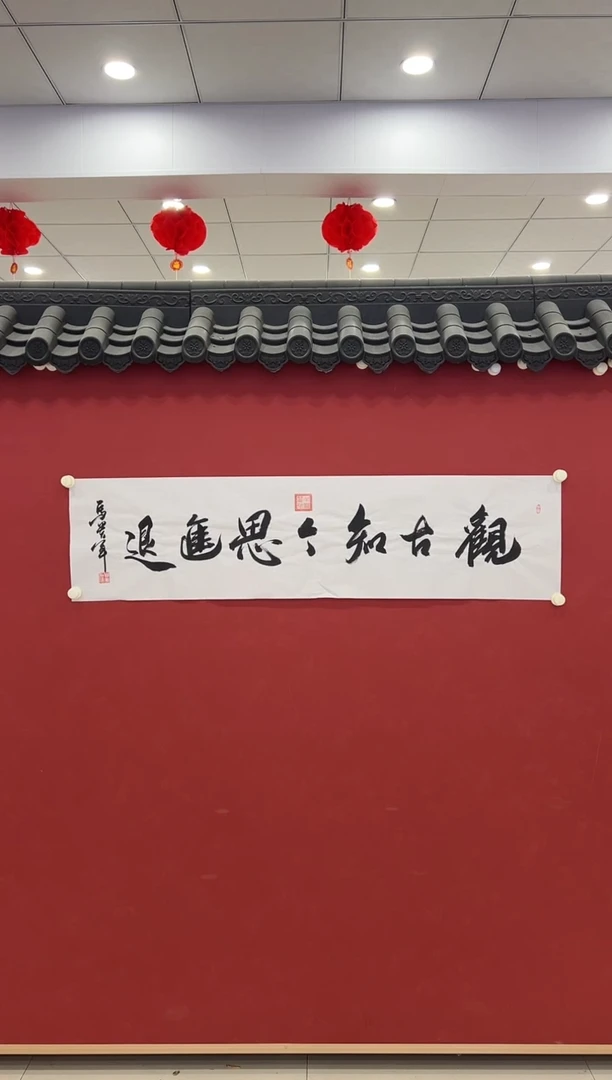 觀古知今思進退